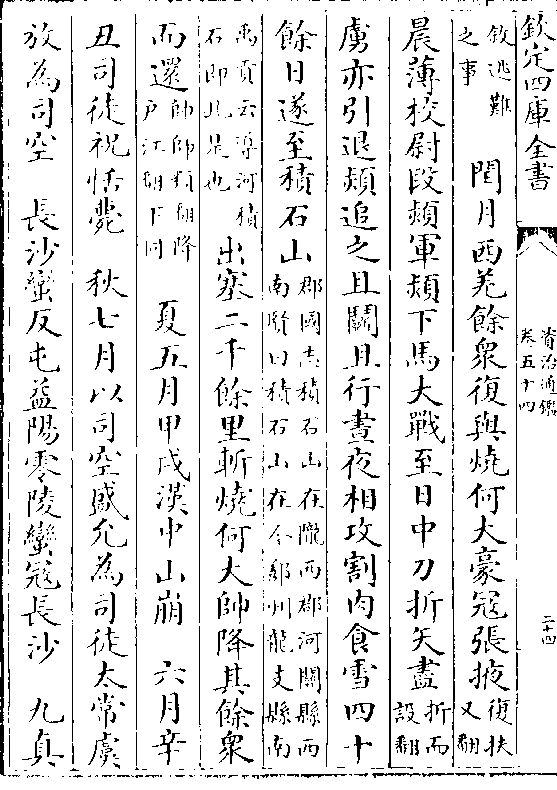 欽定四庫全書
資治通鑑
卷五十四
二十四
敘逃難
之事
閏月西羌餘衆復與燒何大豪冦張掖
復扶
又翻
晨薄校尉段熲軍熲下馬大戰至日中刀折矢盡
折而
設翻
虜亦引退熲追之且鬬且行晝夜相攻割肉食雪四十
餘日遂至積石山
郡國志積石山在隴西郡河關縣西
南賢曰積石山在今鄯州龍支縣南
禹貢云導河積
石即此是也
出塞二千餘里斬燒何大帥降其餘衆
而還
帥師類翻降
戸江翻下同
夏五月甲戍漢中山崩　六月辛
丑司徒祝恬薨　秋七月以司空盛允為司徒太常虞
放為司空　長沙蠻反屯益陽零陵蠻冦長沙　九真